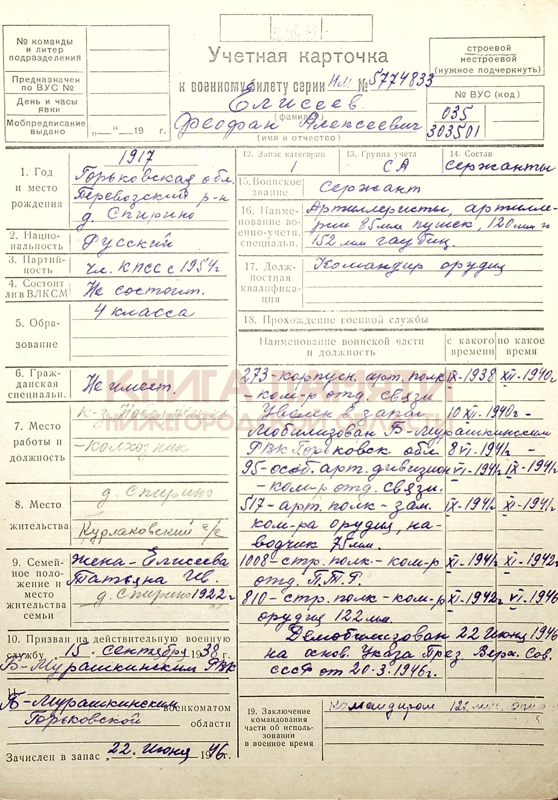 № команды
и литер
подразделения
Предназначен
по ВУС №
День и часы
явки
Мобпредписание
выдано
„—“ 19 г.
Учетная карточка
к военному билету серии НМ № 5774833
Елисеев
(фамилия)
Феофан Алексеевич
(имя и отчество)
строевой
нестроевой
(нужное подчеркнуть)
№ ВУС (код)
035
303501
1. Год
и место
рождения
1917
Горьковская обл.
Перевозский р-н
д. Спирино
2. Нацио-
нальность
Русский
3. Партий-
ность
чл. КПСС с 1954г
4. Состоит
ли в ВЛКСМ
Не состоит.
5. Обра-
зование
4 класса
6. Граж-
данская
специальн.
Не имеет.
7. Место
работы и
должность
к-з
-колхозник
8. Место
жительства
д. Спирино
Курлаковский с/с
9. Семей-
ное поло-
жение и
место
жительства
семьи
жена-Елисеева
Татьяна Ив.
д. Спирино 1922г
10. Призван на действительную военную
службу 15 сентября 1938 г.
Б-Мурашкинским РВК
11.
Б-Мурашкинским
военкоматом
Горьковской
области
Зачислен в запас 22 июня 1946 г.
12. Запас категории
1
13. Группа учета
СА
14. Состав
сержанты
15. Воинское
звание
Сержант
16. Наимено-
вание во-
енно-учетн.
специальн.
Артиллеристы, артилле-
рии 85мм пушек, 120мм и
152мм гаубиц.
17. Долж-
ностная
квалифика-
ция
Командир орудия
18. Прохождение военной службы
Наименование воинской части
и должность
с какого
времени
по какое
время
273-корпусн. арт. полк IX-1938 XII-1940.
-ком-р отд. связи
Уволен в запас 10 XII-1940г -
Мобилизован Б-Мурашкинским
РВК Горьковск обл 8 VI-1941г -
95-особ. арт. дивизион VI-1941г IX-1941г
-ком-р отд. связи.
517-арт. полк-зам. IX-1941г XI-1941г.
ком-ра орудия, на-
водчик 75мм.
1008-стр. полк-ком-р XI-1941г XI-1942г
отд. П.Т.Р.
810-стр. полк-ком-р XI-1942г VI 1946
орудия 122мм.
Демобилизован 22 июня 1946
на основ. Указа През. Верх. Сов.
СССР от 20.3.1946г.
19. Заключение
командования
части об исполь-
зовании
в военное время
Командиром
КНИГА ПАМЯТИ
НИЖЕГОРОДСКОЙ ОБЛАСТИ